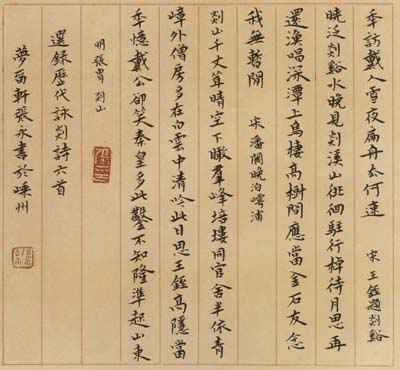 秊訪戴人雪夜扁舟去何 宋 王銍題剡谿
曉泛剡谿水晚見剡溪山徘徊駐行棹待月思再
還漁唱深潭上鳥棲高樹間應當金石友念
我無暫閒 宋 潘閬晚泊嶀浦
剡山千丈聳晴空下瞰羣峰培塿同官舍半依青
嶂外僧房多在白雲中清吟此日思王銍高隱當
秊憶戴公卻笑秦皇多此鑿不知隆準起山東
明 張胄 剡山
選錄歷代詠剡詩六首
夢軒張永書於嵊州